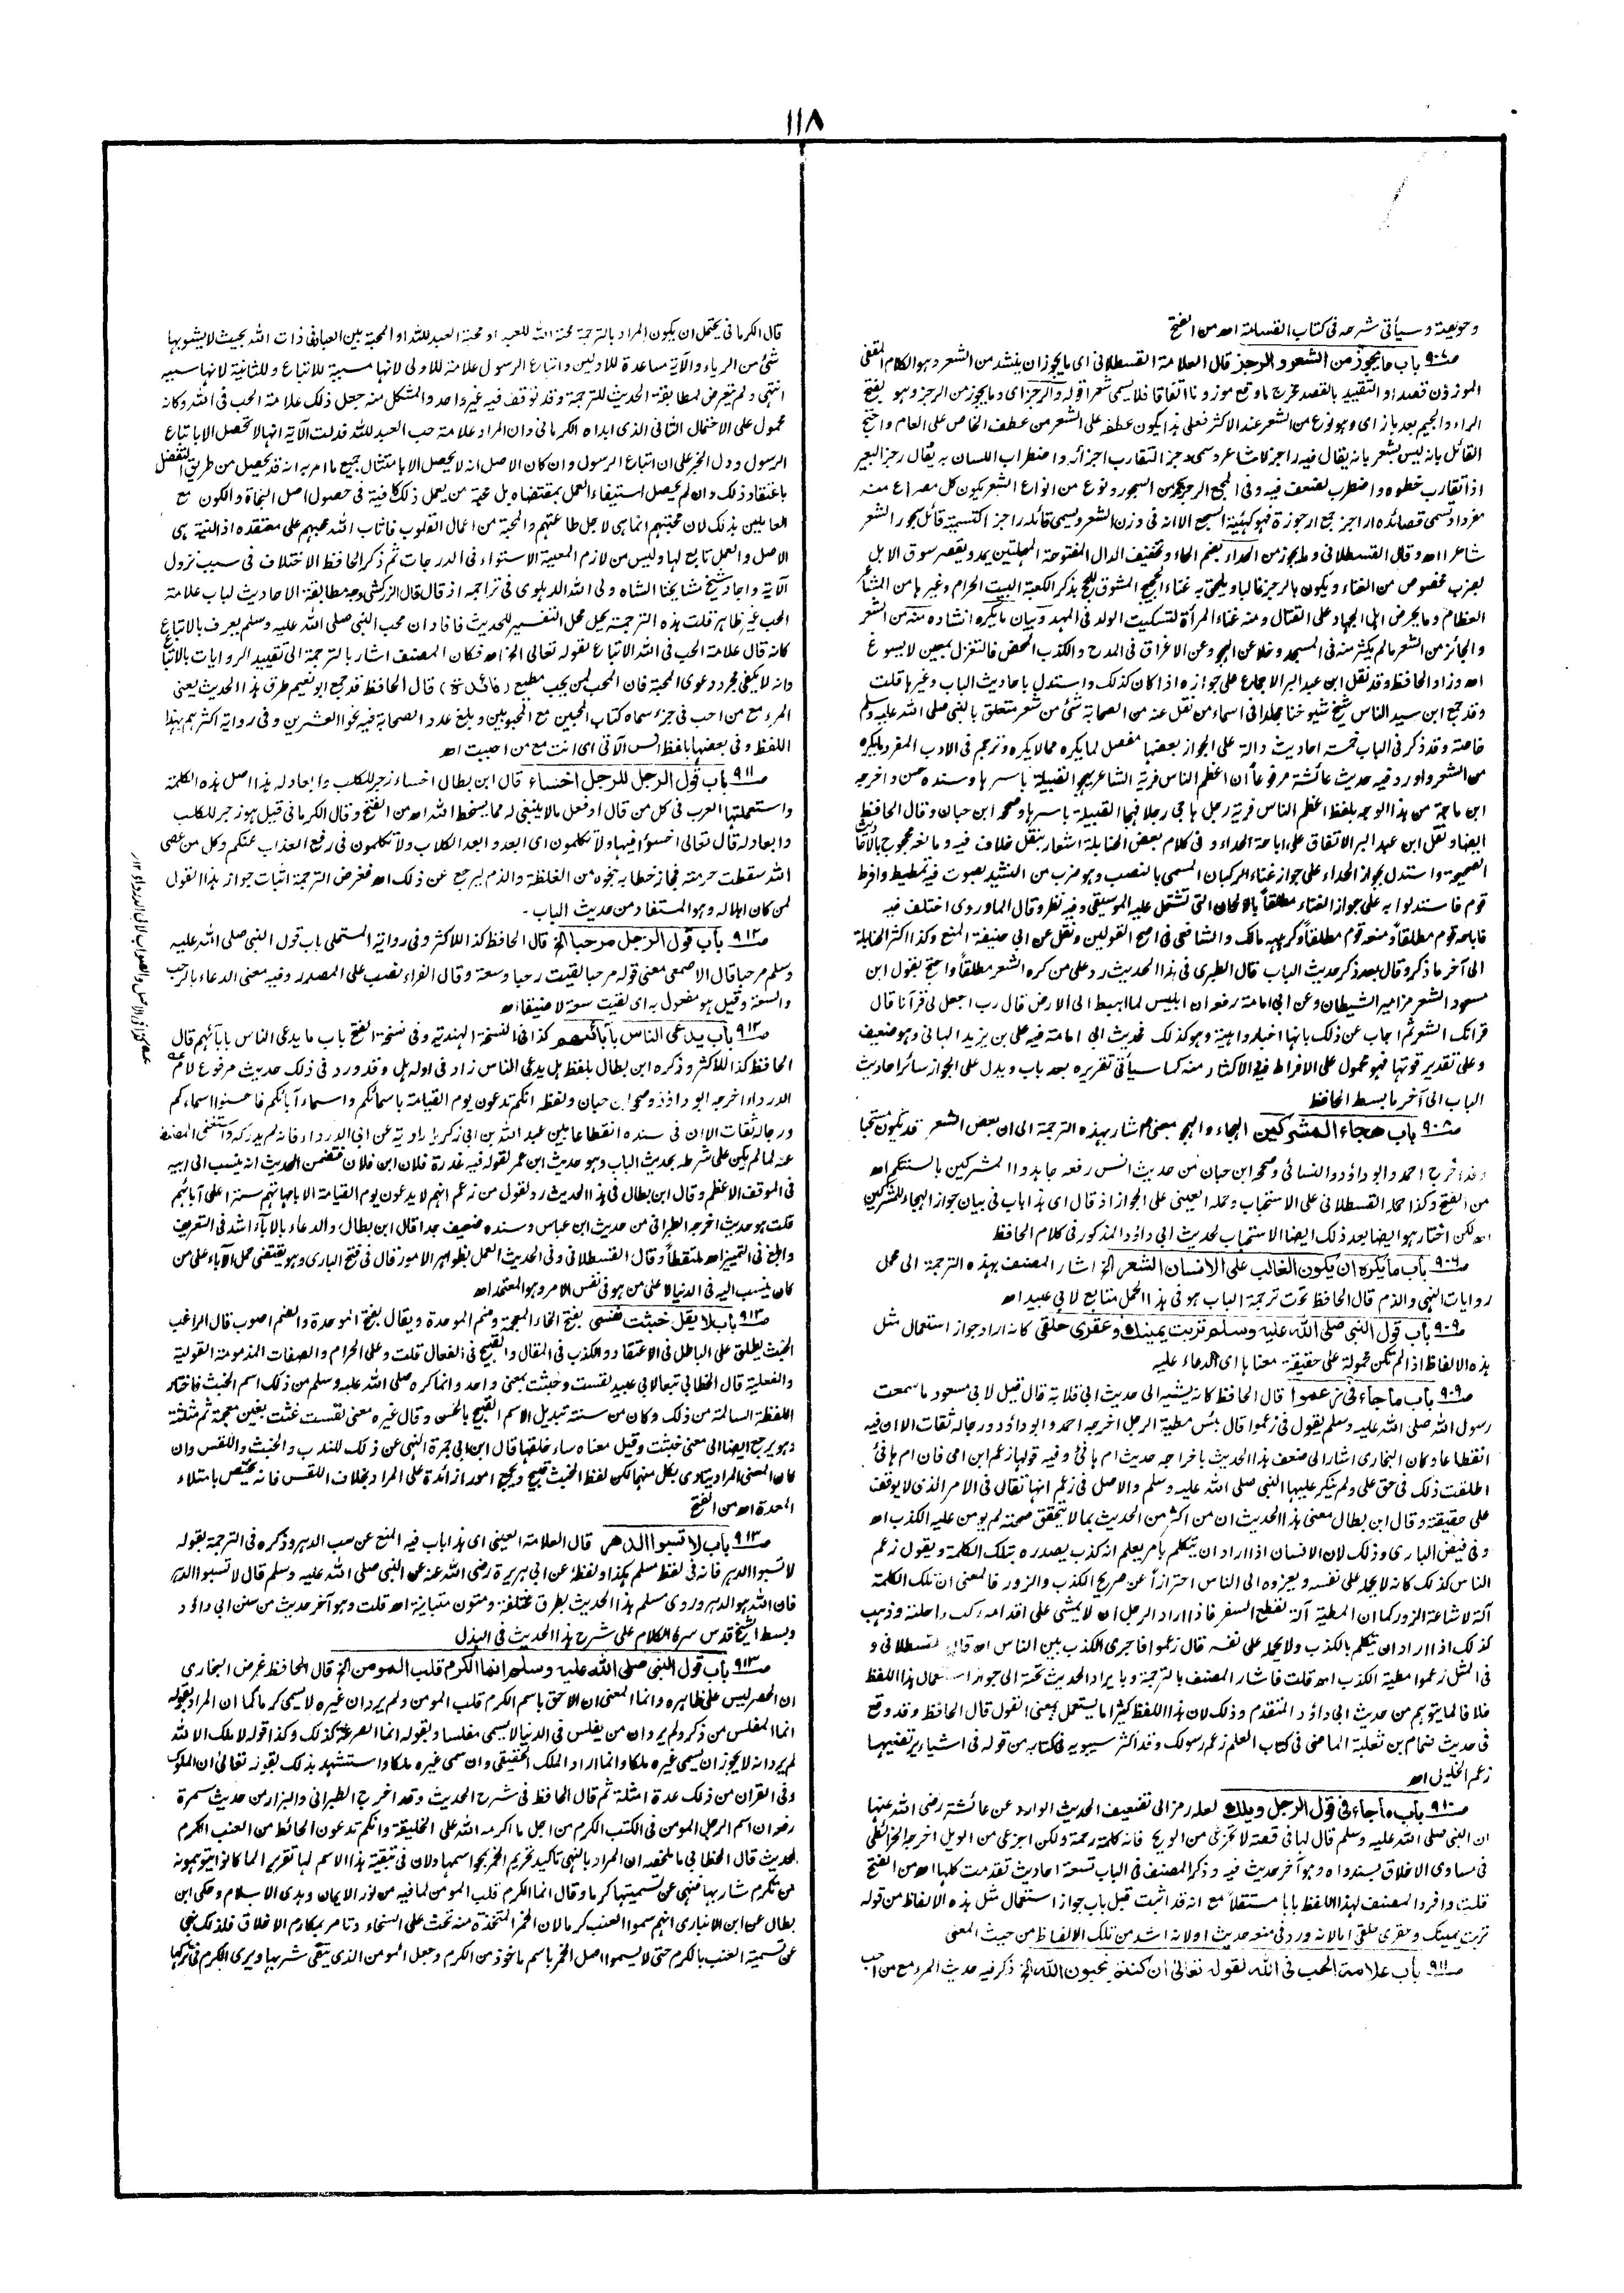 ١١٨
وحويصة وسيأتى شرحه فى كتاب القسامة اھ من الفتح
صـ٩٠٨ باب ما يجوز من الشعر والرجز قال العلامة القسطلانى اى ما يجوز ان ينشد من الشعر وهو الكلام المقفى
الموزون قصدا والتقييد بالقصد مخرج ما وقع موزونا اتفاقا فلا يسمى شعرا قوله والرجز اى وما يجوز من الرجز وهو بفتح
الراء والجيم بعدها زاى وهو نوع من الشعر عند الاكثر فعلى هذا يكون عطفه على الشعر من عطف الخاص على العام واحتج
القائل بانه ليس بشعر بانه يقال فيه راجز لا شاعر وسمى رجزا لتقارب اجزائه واضطراب اللسان به يقال رجز البعير
اذا تقارب خطوه واضطرب لضعف فيه وفى المجمع الرجز بحر من البحور ونوع من انواع الشعر يكون كل مصراع منه
مفردا وتسمى قصائده اراجيز جمع ارجوزة فهو كهيئة السجع الا انه فى وزن الشعر ويسمى قائله راجزا كتسمية قائل بحور الشعر
شاعرا اھ وقال القسطلانى وما يجوز من الحداء بضم الحاء وتخفيف الدال المفتوحة المهملتين يمد ويقصر سوق الابل
بضرب مخصوص من الغناء ويكون بالرجز غالبا ويلحق به غناء الحجيج المشوق للحج بذكر الكعبة البيت الحرام وغيرها من المشاعر
العظام وما يحرض اهل الجهاد على القتال ومنه غناء المرأة لتسكيت الولد فى المهد وبيان ما يكره انشاده منه من الشعر
والجائز من الشعر ما لم يكثر منه فى المسجد وخلا عن الهجو وعن الاغراق فى المدح والكذب المحض فالتغزل بمعين لا يسوغ
اھ وزاد الحافظ وقد نقل ابن عبد البر الاجماع على جوازه اذا كان كذلك واستدل باحاديث الباب وغيرها قلت
وقد جمع ابن سيد الناس شيخ شيوخنا مجلدا فى اسماء من نقل عنه من الصحابة شئ من شعر متعلق بالنبى صلى الله عليه وسلم
خاصة وقد ذكر فى الباب خمسة احاديث دالة على الجواز بعضها مفصل لما يكره مما لا يكره وترجم فى الادب المفرد ما يكره
من الشعر واورد فيه حديث عائشة مرفوعا ان اعظم الناس فرية الشاعر يهجو القبيلة باسرها وسنده حسن واخرجه
ابن ماجة من هذا الوجه بلفظ اعظم الناس فرية رجل هاجى رجلا فهجا القبيلة باسرها وصححه ابن حبان وقال الحافظ
ايضا ونقل ابن عبد البر الاتفاق على اباحة الحداء وفى كلام بعض الحنابلة اشعار بنقل خلاف فيه ومانعه محجوج بالاحاديث
الصحيحة واستدل بجواز الحداء على جواز غناء الركبان المسمى بالنصب وهو ضرب من النشيد بصوت فيه تمطيط وافرط
قوم فاستدلوا به على جواز الغناء مطلقا بالالحان التى تشتمل عليه الموسيقى وفيه نظر وقال الماوردى اختلف فيه
فاباحه قوم مطلقا ومنعه قوم مطلقا وكرهه مالك والشافعى فى اصح القولين ونقل عن ابى حنيفة المنع وكذا اكثر الحنابلة
الى آخر ما ذكر وقال بعد ذكر حديث الباب قال الطبرى فى هذا الحديث رد على من كره الشعر مطلقا واحتج بقول ابن
مسعود الشعر مزامير الشيطان وعن ابى امامة رفعه ان ابليس لما اهبط الى الارض قال رب اجعل لى قرآنا قال
قرآنك الشعر ثم اجاب عن ذلك بانها اخبار واهية وهو كذلك فحديث ابى امامة فيه على بن يزيد الهانى وهو ضعيف
وعلى تقدير قوتها فهو محمول على الافراط فيه والاكثار منه كما سيأتى تقريره بعد باب ويدل على الجواز سائر احاديث
الباب الى آخر ما بسط الحافظ
صـ٩٠٨ باب هجاء المشركين الهجاء والهجو بمعنى اشار بهذه الترجمة الى ان بعض الشعر قد يكون مستحبا
وقد اخرج احمد وابو داؤد والنسائى وصححه ابن حبان من حديث انس رفعه جاهدوا المشركين بالسنتكم اھ
من الفتح وكذا حمله القسطلانى على الاستحباب وحمله العينى على الجواز اذ قال اى هذا باب فى بيان جواز الهجاء للمشركين
اھ لكن اختار هو ايضا بعد ذلك ايضا الاستحباب لحديث ابى داؤد المذكور فى كلام الحافظ
صـ٩٠٩ باب ما يكره ان يكون الغالب على الانسان الشعر الخ اشار المصنف بهذه الترجمة الى محمل
روايات النهى والذم قال الحافظ تحت ترجمة الباب هو فى هذا الحمل متابع لابى عبيد اھ
صـ٩٠٩ باب قول النبى صلى الله عليه وسلم تربت يمينك وعقرى حلقى كانه اراد جواز استعمال مثل
هذه الالفاظ اذا لم تكن محمولة على حقيقة معناها اى الدعاء عليه
صـ٩٠٩ باب ما جاء فى زعموا قال الحافظ كانه يشير الى حديث ابى قلابة قال قيل لابى مسعود ما سمعت
رسول الله صلى الله عليه وسلم يقول فى زعموا قال بئس مطية الرجل اخرجه احمد وابو داؤد ورجاله ثقات الا ان فيه
انقطاعا وكان البخارى اشار الى ضعف هذا الحديث باخراجه حديث ام هانئ وفيه قولها زعم ابن امى فان ام هانئ
اطلقت ذلك فى حق على ولم ينكر عليها النبى صلى الله عليه وسلم والاصل فى زعم انها تقال فى الامر الذى لا يوقف
على حقيقته وقال ابن بطال معنى هذا الحديث ان من اكثر من الحديث بما لا يتحقق صحته لم يومن عليه الكذب اھ
وفى فيض البارى وذلك لان الانسان اذا اراد ان يتكلم بامر يعلم انه كذب يصدره بتلك الكلمة ويقول زعم
الناس كذلك كانه لا يحمله على نفسه ويعزوه الى الناس احترازا عن صريح الكذب والزور فالمعنى ان تلك الكلمة
آلة لاشاعة الزور كما ان المطية آلة لقطع السفر فاذا اراد الرجل ان لا يمشى على اقدامه ركب راحلته وذهب
كذلك اذا اراد ان يتكلم بالكذب ولا يحمله على نفسه قال زعموا فاجرى الكذب بين الناس اھ قال القسطلانى و
فى المثل زعموا مطية الكذب اھ قلت فاشار المصنف بالترجمة وبايراد الحديث تحته الى جواز استعمال هذا اللفظ
خلافا لما يتوهم من حديث ابى داؤد المتقدم وذلك لان هذا اللفظ كثيرا ما يستعمل بمعنى القول قال الحافظ وقد وقع
فى حديث ضمام بن ثعلبة الماضى فى كتاب العلم زعم رسولك وقد اكثر سيبويه فى كتابه من قوله فى اشياء يرتضيها
زعم الخليل اھ
صـ٩١٠ باب ما جاء فى قول الرجل ويلك لعله رمز الى تضعيف الحديث الوارد عن عائشة رضى الله عنها
ان النبى صلى الله عليه وسلم قال لها فى قصة لا تجزعى من الويح فانه كلمة رحمة ولكن اجزعى من الويل اخرجه الخرائطى
فى مساوى الاخلاق بسند واه وهو آخر حديث فيه وذكر المصنف فى الباب تسعة احاديث تقدمت كلها اھ من الفتح
قلت وافرد المصنف لهذا اللفظ بابا مستقلا مع انه قد اثبت قبل باب جواز استعمال مثل هذه الالفاظ من قوله
تربت يمينك وعقرى حلقى اما لانه ورد فى منعه حديث او لانه اشد من تلك الالفاظ من حيث المعنى
صـ٩١١ باب علامة الحب فى الله لقوله تعالى ان كنتم تحبون الله الخ ذكر فيه حديث المرء مع من احب
قال الكرمانى يحتمل ان يكون المراد بالترجمة محبة الله للعبد او محبة العبد لله او المحبة بين العباد فى ذات الله بحيث لا يشوبها
شئ من الرياء والآية مساعدة للاوليين واتباع الرسول علامة للاولى لانها مسببة للاتباع وللثانية لانها سببه
انتهى ولم يتعرض لمطابقة الحديث للترجمة وقد توقف فيه غير واحد والمشكل منه جعل ذلك علامة الحب فى الله وكانه
محمول على الاحتمال الثانى الذى ابداه الكرمانى وان المراد علامة حب العبد لله فدلت الآية انها لا تحصل الا باتباع
الرسول ودل الخبر على ان اتباع الرسول وان كان الاصل انه لا يحصل الا بامتثال جميع ما امر به انه قد يحصل من طريق التفضل
باعتقاد ذلك وان لم يحصل استيفاء العمل بمقتضاه بل محبة من يعمل ذلك كافية فى حصول اصل النجاة والكون مع
العاملين بذلك لان محبتهم انما هى لاجل طاعتهم والمحبة من اعمال القلوب فاثاب الله محبهم على معتقده اذ النية هى
الاصل والعمل تابع لها وليس من لازم المعية الاستواء فى الدرجات ثم ذكر الحافظ الاختلاف فى سبب نزول
الآية واجاد شيخ مشايخنا الشاه ولى الله الدهلوى فى تراجمه اذ قال قال الزركشى وجه مطابقة الاحاديث لباب علامة
الحب غير ظاهر قلت هذه الترجمة يحل محل التفسير للحديث فافاد ان محب النبى صلى الله عليه وسلم يعرف بالاتباع
كانه قال علامة الحب فى الله الاتباع لقوله تعالى الخ اھ فكان المصنف اشار بالترجمة الى تقييد الروايات بالاتباع
وانه لا يكفى مجرد دعوى المحبة فان المحب لمن يحب مطيع (فائدة) قال الحافظ قد جمع ابو نعيم طرق هذا الحديث يعنى
المرء مع من احب فى جزء سماه كتاب المحبين مع المحبوبين وبلغ عدد الصحابة فيه نحو العشرين وفى رواية اكثرهم بهذا
اللفظ وفى بعضها بلفظ انس الآتى اى انت مع من احببت اھ
صـ٩١١ باب قول الرجل للرجل اخساء قال ابن بطال اخساء زجر للكلب وابعاد له هذا اصل هذه الكلمة
واستعملتها العرب فى كل من قال او فعل ما لا ينبغى له مما يسخط الله اھ من الفتح وقال الكرمانى قيل هو زجر للكلب
وابعاد له قال تعالى اخسؤا فيها ولا تكلمون اى ابعدوا بعد الكلاب ولا تكلمون فى رفع العذاب عنكم وكل من عصى
الله سقطت حرمته فجاز خطابه بنحوه من الغلظة والذم ليرجع عن ذلك اھ فغرض الترجمة اثبات جواز هذا القول
لمن كان اهلا له وهو المستفاد من حديث الباب -
صـ٩١٢ باب قول الرجل مرحبا الخ قال الحافظ كذا للاكثر وفى رواية المستملى باب قول النبى صلى الله عليه
وسلم مرحبا قال الاصمعى معنى قوله مرحبا لقيت رحبا وسعة وقال الفراء نصب على المصدر وفيه معنى الدعاء بالرحب
والسعة وقيل هو مفعول به اى لقيت سعة لا ضيقا اھ
صـ٩١٢ باب يدعى الناس بآبائهم كذا فى النسخة الهندية وفى نسخة الفتح باب ما يدعى الناس بابائهم قال
الحافظ كذا للاكثر وذكره ابن بطال بلفظ هل يدعى الناس زاد فى اوله هل وقد ورد فى ذلك حديث مرفوع لام عه
الدرداء اخرجه ابو داؤد وصححه ابن حبان ولفظه انكم تدعون يوم القيامة باسمائكم واسماء آبائكم فاحسنوا اسماءكم
ورجاله ثقات الا ان فى سنده انقطاعا بين عبد الله بن ابى زكريا راويه عن ابى الدرداء فانه لم يدركه واستغنى المصنف
عنه لما لم يكن على شرطه بحديث الباب وهو حديث ابن عمر لقوله فيه غدرة فلان ابن فلان فتضمن الحديث انه ينسب الى ابيه
فى الموقف الاعظم وقال ابن بطال فى هذا الحديث رد لقول من زعم انهم لا يدعون يوم القيامة الا بامهاتهم سترا على آبائهم
قلت هو حديث اخرجه الطبرانى من حديث ابن عباس وسنده ضعيف جدا قال ابن بطال والدعاء بالآباء اشد فى التعريف
وابلغ فى التمييز اھ ملتقطا وقال القسطلانى وفى الحديث العمل بظواهر الامور قال فى فتح البارى وهو يقتضى حمل الآباء على من
كان ينسب اليه فى الدنيا لا على من هو فى نفس الامر وهو المعتمد اھ
صـ٩١٣ باب لا يقل خبثت نفسى بفتح الخاء المعجمة وضم الموحدة ويقال بفتح الموحدة والضم اصوب قال الراغب
الخبث يطلق على الباطل فى الاعتقاد والكذب فى المقال والقبيح فى الفعال قلت وعلى الحرام والصفات المذمومة القولية
والفعلية قال الخطابى تبعا لابى عبيد لقست وخبثت بمعنى واحد وانما كره صلى الله عليه وسلم من ذلك اسم الخبث فاختار
اللفظة السالمة من ذلك وكان من سنته تبديل الاسم القبيح بالحسن وقال غيره معنى لقست غثت بغين معجمة ثم مثلثة
وهو يرجع ايضا الى معنى خبثت وقيل معناه ساء خلقها قال ابن ابى جمرة النهى عن ذلك للندب والخبث واللقس وان
كان المعنى المراد يتادى بكل منهما لكن لفظ الخبث قبيح ويجمع امورا زائدة على المراد بخلاف اللقس فانه يختص بامتلاء
المعدة اھ من الفتح
صـ٩١٣ باب لا تسبوا الدهر قال العلامة العينى اى هذا باب فيه المنع عن سب الدهر وذكره فى الترجمة بقوله
لا تسبوا الدهر فانه فى لفظ مسلم هكذا ولفظه عن ابى هريرة رضى الله عنه عن النبى صلى الله عليه وسلم قال لا تسبوا الدهر
فان الله هو الدهر وروى مسلم هذا الحديث بطرق مختلفة ومتون متباينة اھ قلت وهو آخر حديث من سنن ابى داؤد
وبسط الشيخ قدس سره الكلام على شرح هذا الحديث فى البذل
صـ٩١٣ باب قول النبى صلى الله عليه وسلم انما الكرم قلب المومن الخ قال الحافظ غرض البخارى
ان الحصر ليس على ظاهره وانما المعنى ان الاحق باسم الكرم قلب المومن ولم يرد ان غيره لا يسمى كرما كما ان المراد بقوله
انما المفلس من ذكر ولم يرد ان من يفلس فى الدنيا لا يسمى مفلسا وبقوله انما الصرعة كذلك وكذا قوله لا ملك الا لله
لم يرد انه لا يجوز ان يسمى غيره ملكا وانما اراد الملك الحقيقى وان سمى غيره ملكا واستشهد بذلك بقوله تعالى ان الملوك
وفى القرآن من ذلك عدة امثلة ثم قال الحافظ فى شرح الحديث وقد اخرج الطبرانى والبزار من حديث سمرة
رفعه ان اسم الرجل المومن فى الكتب الكرم من اجل ما اكرمه الله على الخليقة وانكم تدعون الحائط من العنب الكرم
الحديث قال الخطابى ما ملخصه ان المراد بالنهى تاكيد تحريم الخمر بمحو اسمها ولان فى تبقية هذا الاسم لها تقريرا لما كانوا يتوهمونه
من تكرم شاربها فنهى عن تسميتها كرما وقال انما الكرم قلب المومن لما فيه من نور الايمان وهدى الاسلام وحكى ابن
بطال عن ابن الانبارى انهم سموا العنب كرما لان الخمر المتخذة منه تحث على السخاء وتامر بمكارم الاخلاق فلذلك نهى
عن تسمية العنب بالكرم حتى لا يسموا اصل الخمر باسم ماخوذ من الكرم وجعل المومن الذى يتقى شربها ويرى الكرم فى تركها
عه كذا فى الاصل والصواب لابى الدرداء ١٢